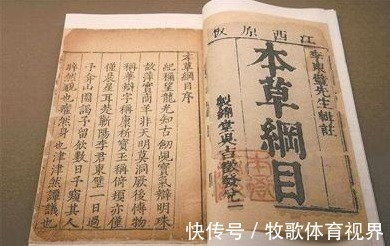 江西原板
李東璧先生輯註
本草綱目
製錦堂
本草綱目序
紀稱望龍光知古劍覘寶氣辨明珠
故萍實商羊非天明莫洞厥後博物
稱華辯字稱康析寶玉稱倚頓亦僅
僅晨星耳楚蘄陽李君東璧一日過
予弇山園謁予留飲數日予窺其人
睟然貌也癯然身也津津然譚議也
快传号/牧歌体育视界